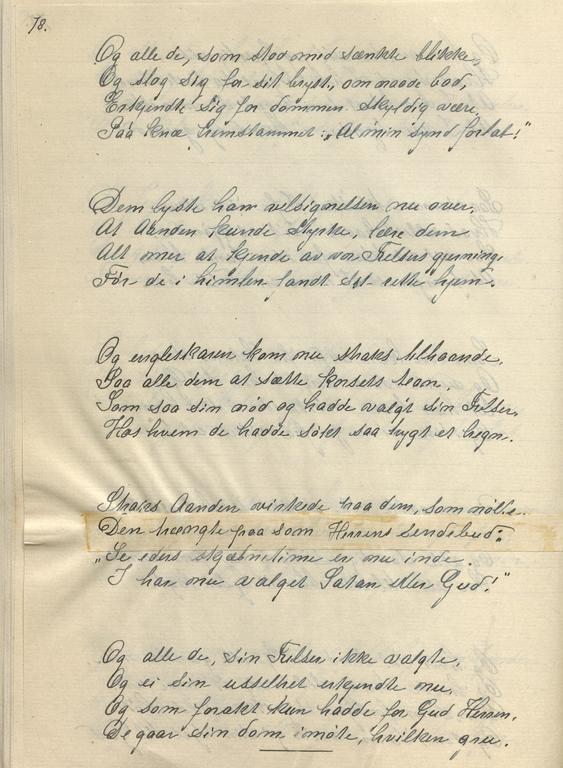 78.
Og alle de, som stod med sænkte blikke,
Og slog sig for sit bryst, om naade bad,
Erkjendte sig for dommen skyldig være
Paa knæ fremstammet: „Al min synd forlat!"
Dem lyste han velsignelsen nu over,
At Aanden kunde styrke, lære dem
Alt mer at kjende av vor Frelsers gjerning,
Før de i himlen fandt sit rette hjem.
Og engleskaren kom nu straks tilhaande,
Paa alle dem at sætte korsets tegn,
Som saa sin nød og hadde valgt sin Frelser,
Hos hvem de hadde søkt saa trygt et hegn.
Straks Aanden virkede paa dem, som nølte.
Den trængte paa som Herrens sendebud:
„Se eders skjæbnetime er nu inde.
I har nu valget Satan eller Gud!"
Og alle de, sin Frelser ikke valgte,
Og ei sin usselhet erkjendte nu,
Og som forakt kun hadde for Gud Herren,
De gaar sin dom imøte, hvilken gru.